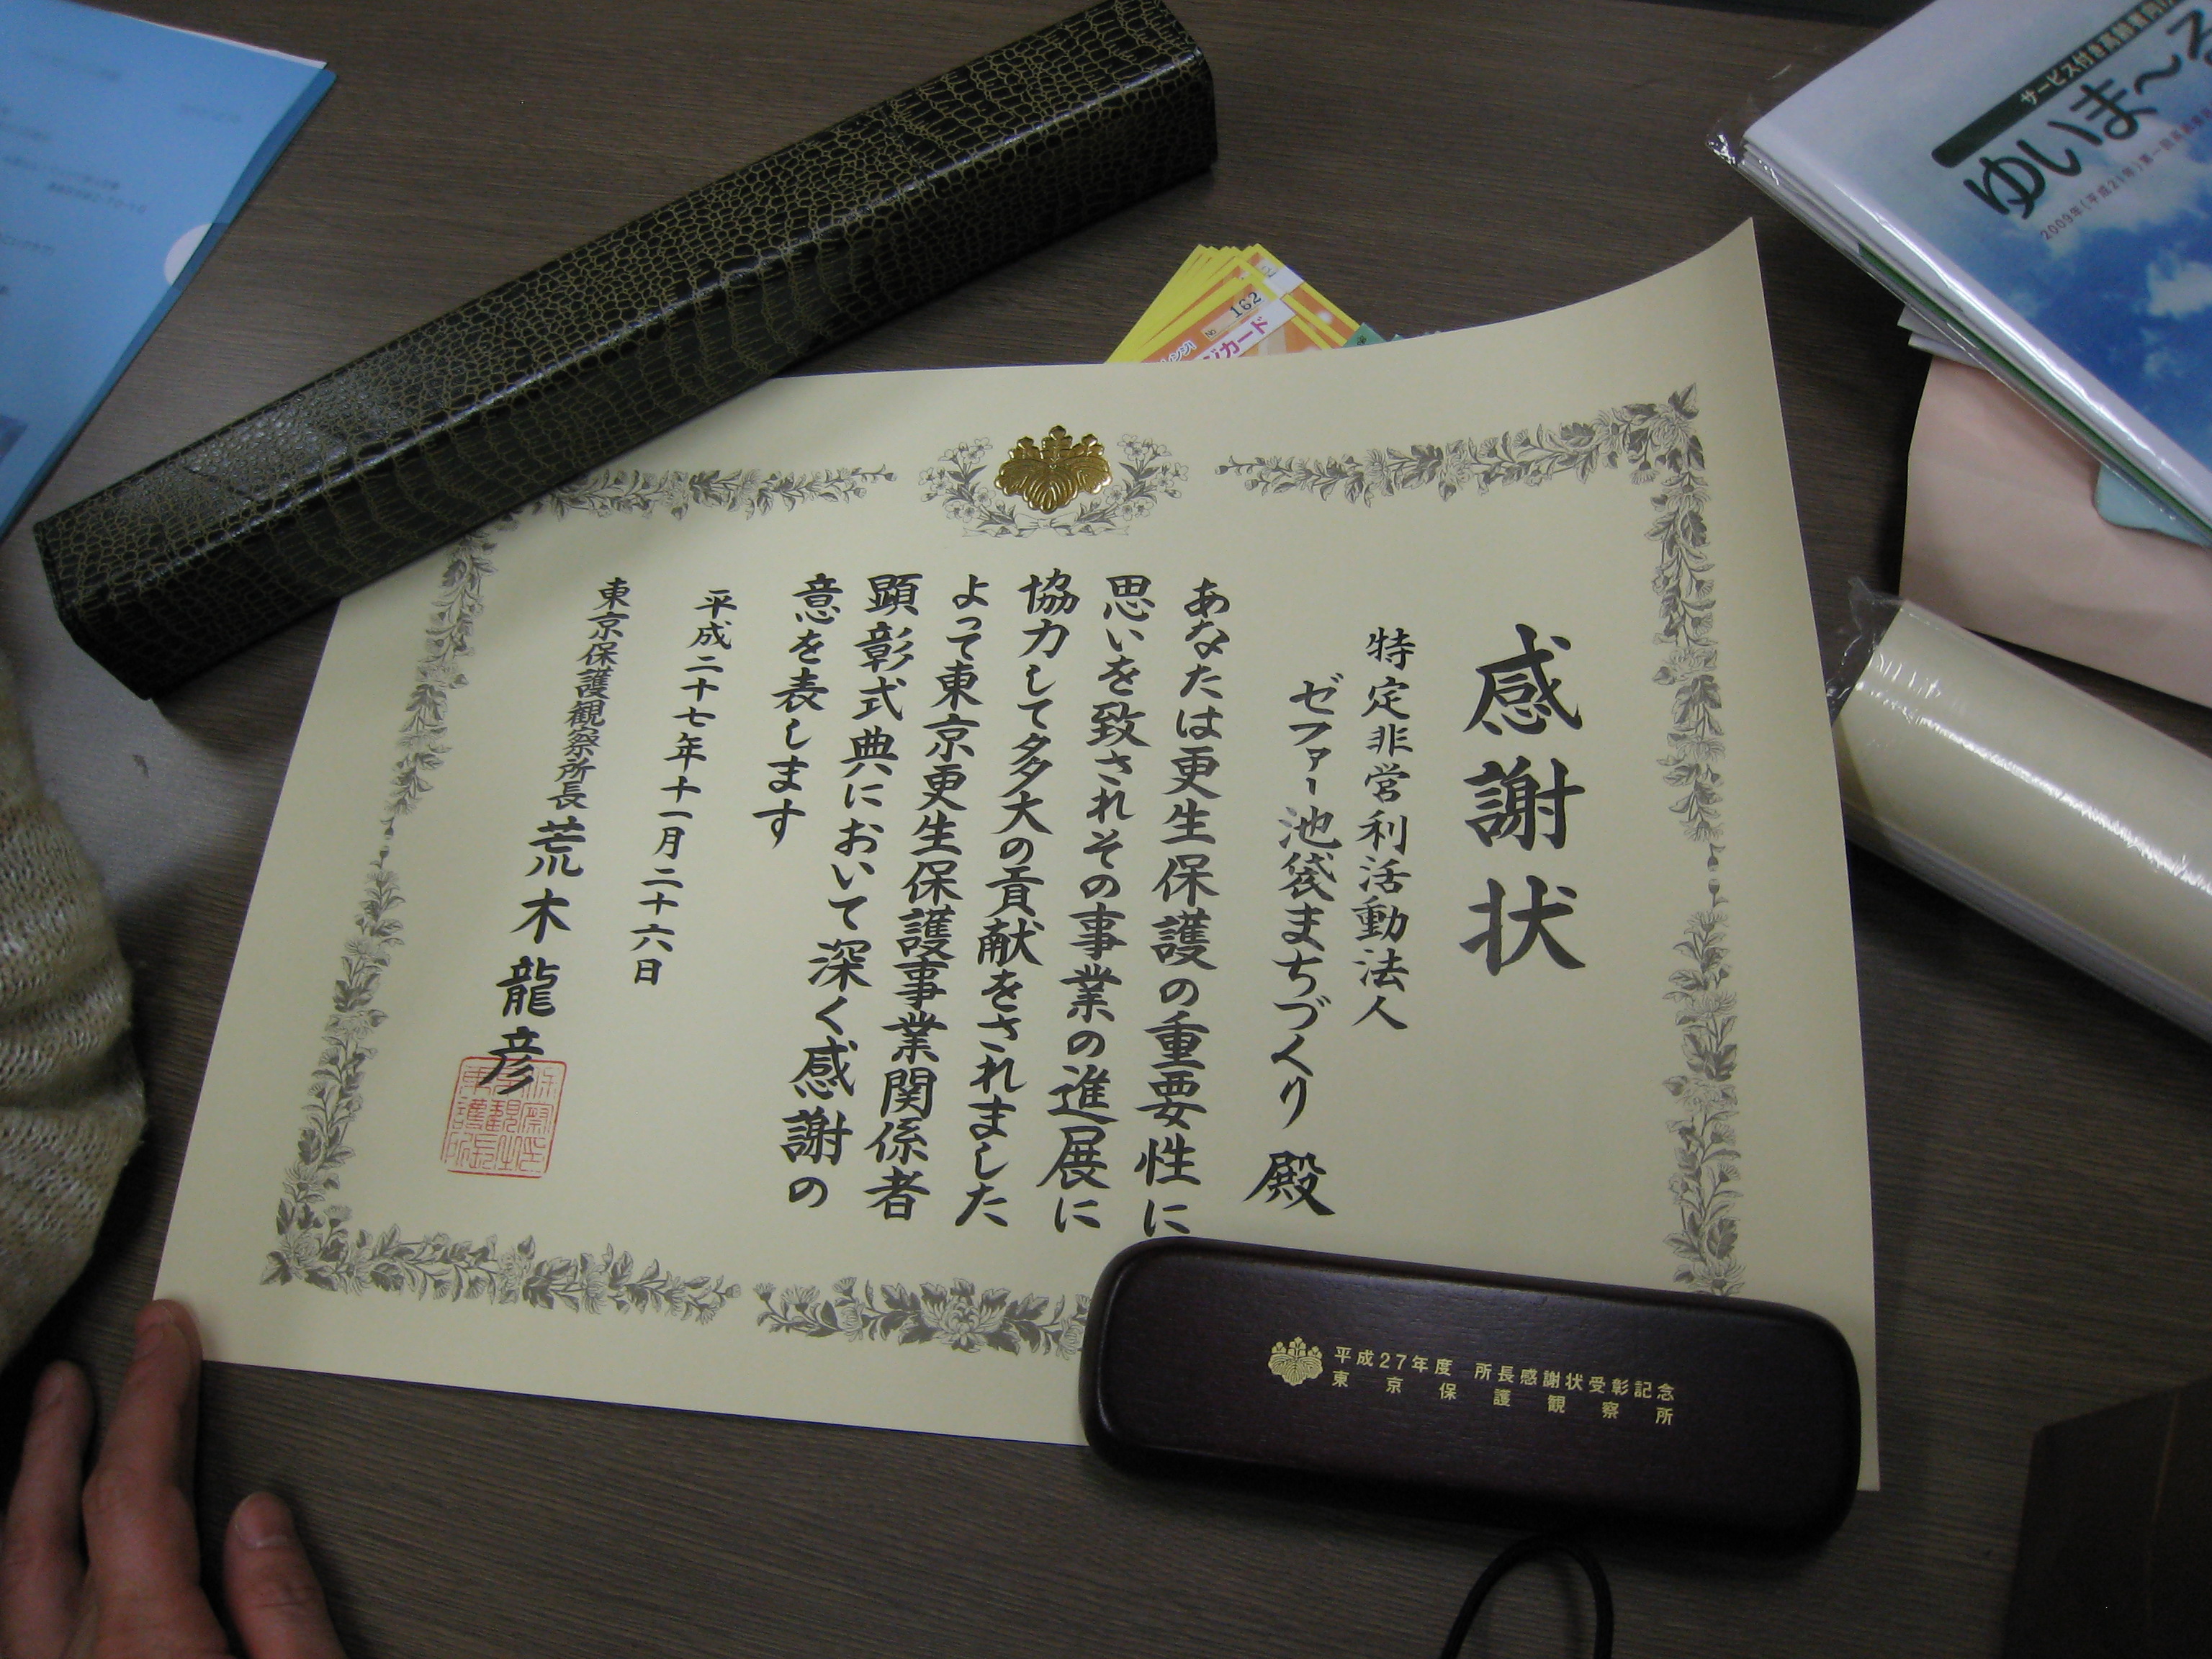 感謝状
特定非営利活動法人
ゼファー池袋まちづくり 殿
あなたは更生保護の重要性に
思いを致されその事業の進展に
協力して多大の貢献をされました
よって東京更生保護事業関係者
顕彰式典において深く感謝の
意を表します
平成二十七年十一月二十六日
東京保護観察所長 荒木龍彦
平成27年度 所長感謝状受彰記念
東京保護観察所
サービス付き高齢者向け
ゆいま〜る
2009年(平成21年)第一回
№ 162
ジカード